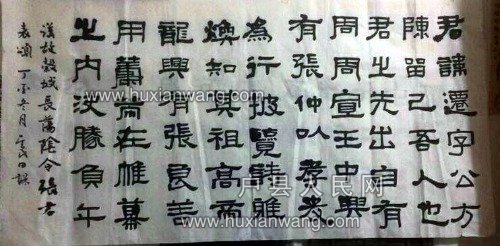 君諱遷字公方
陳留己吾人也
君之先出自有
周周宣王中興
有張仲以孝友
為行披覽詩雅
煥知其祖高帝
龍興有張良善
用籌策在帷幕
之內決勝負千
漢故穀城長蕩陰令張君
表頌 月 日課
www.huxianwang.com
www.huxianwang.com
户县人民网
www.huxianwang.com